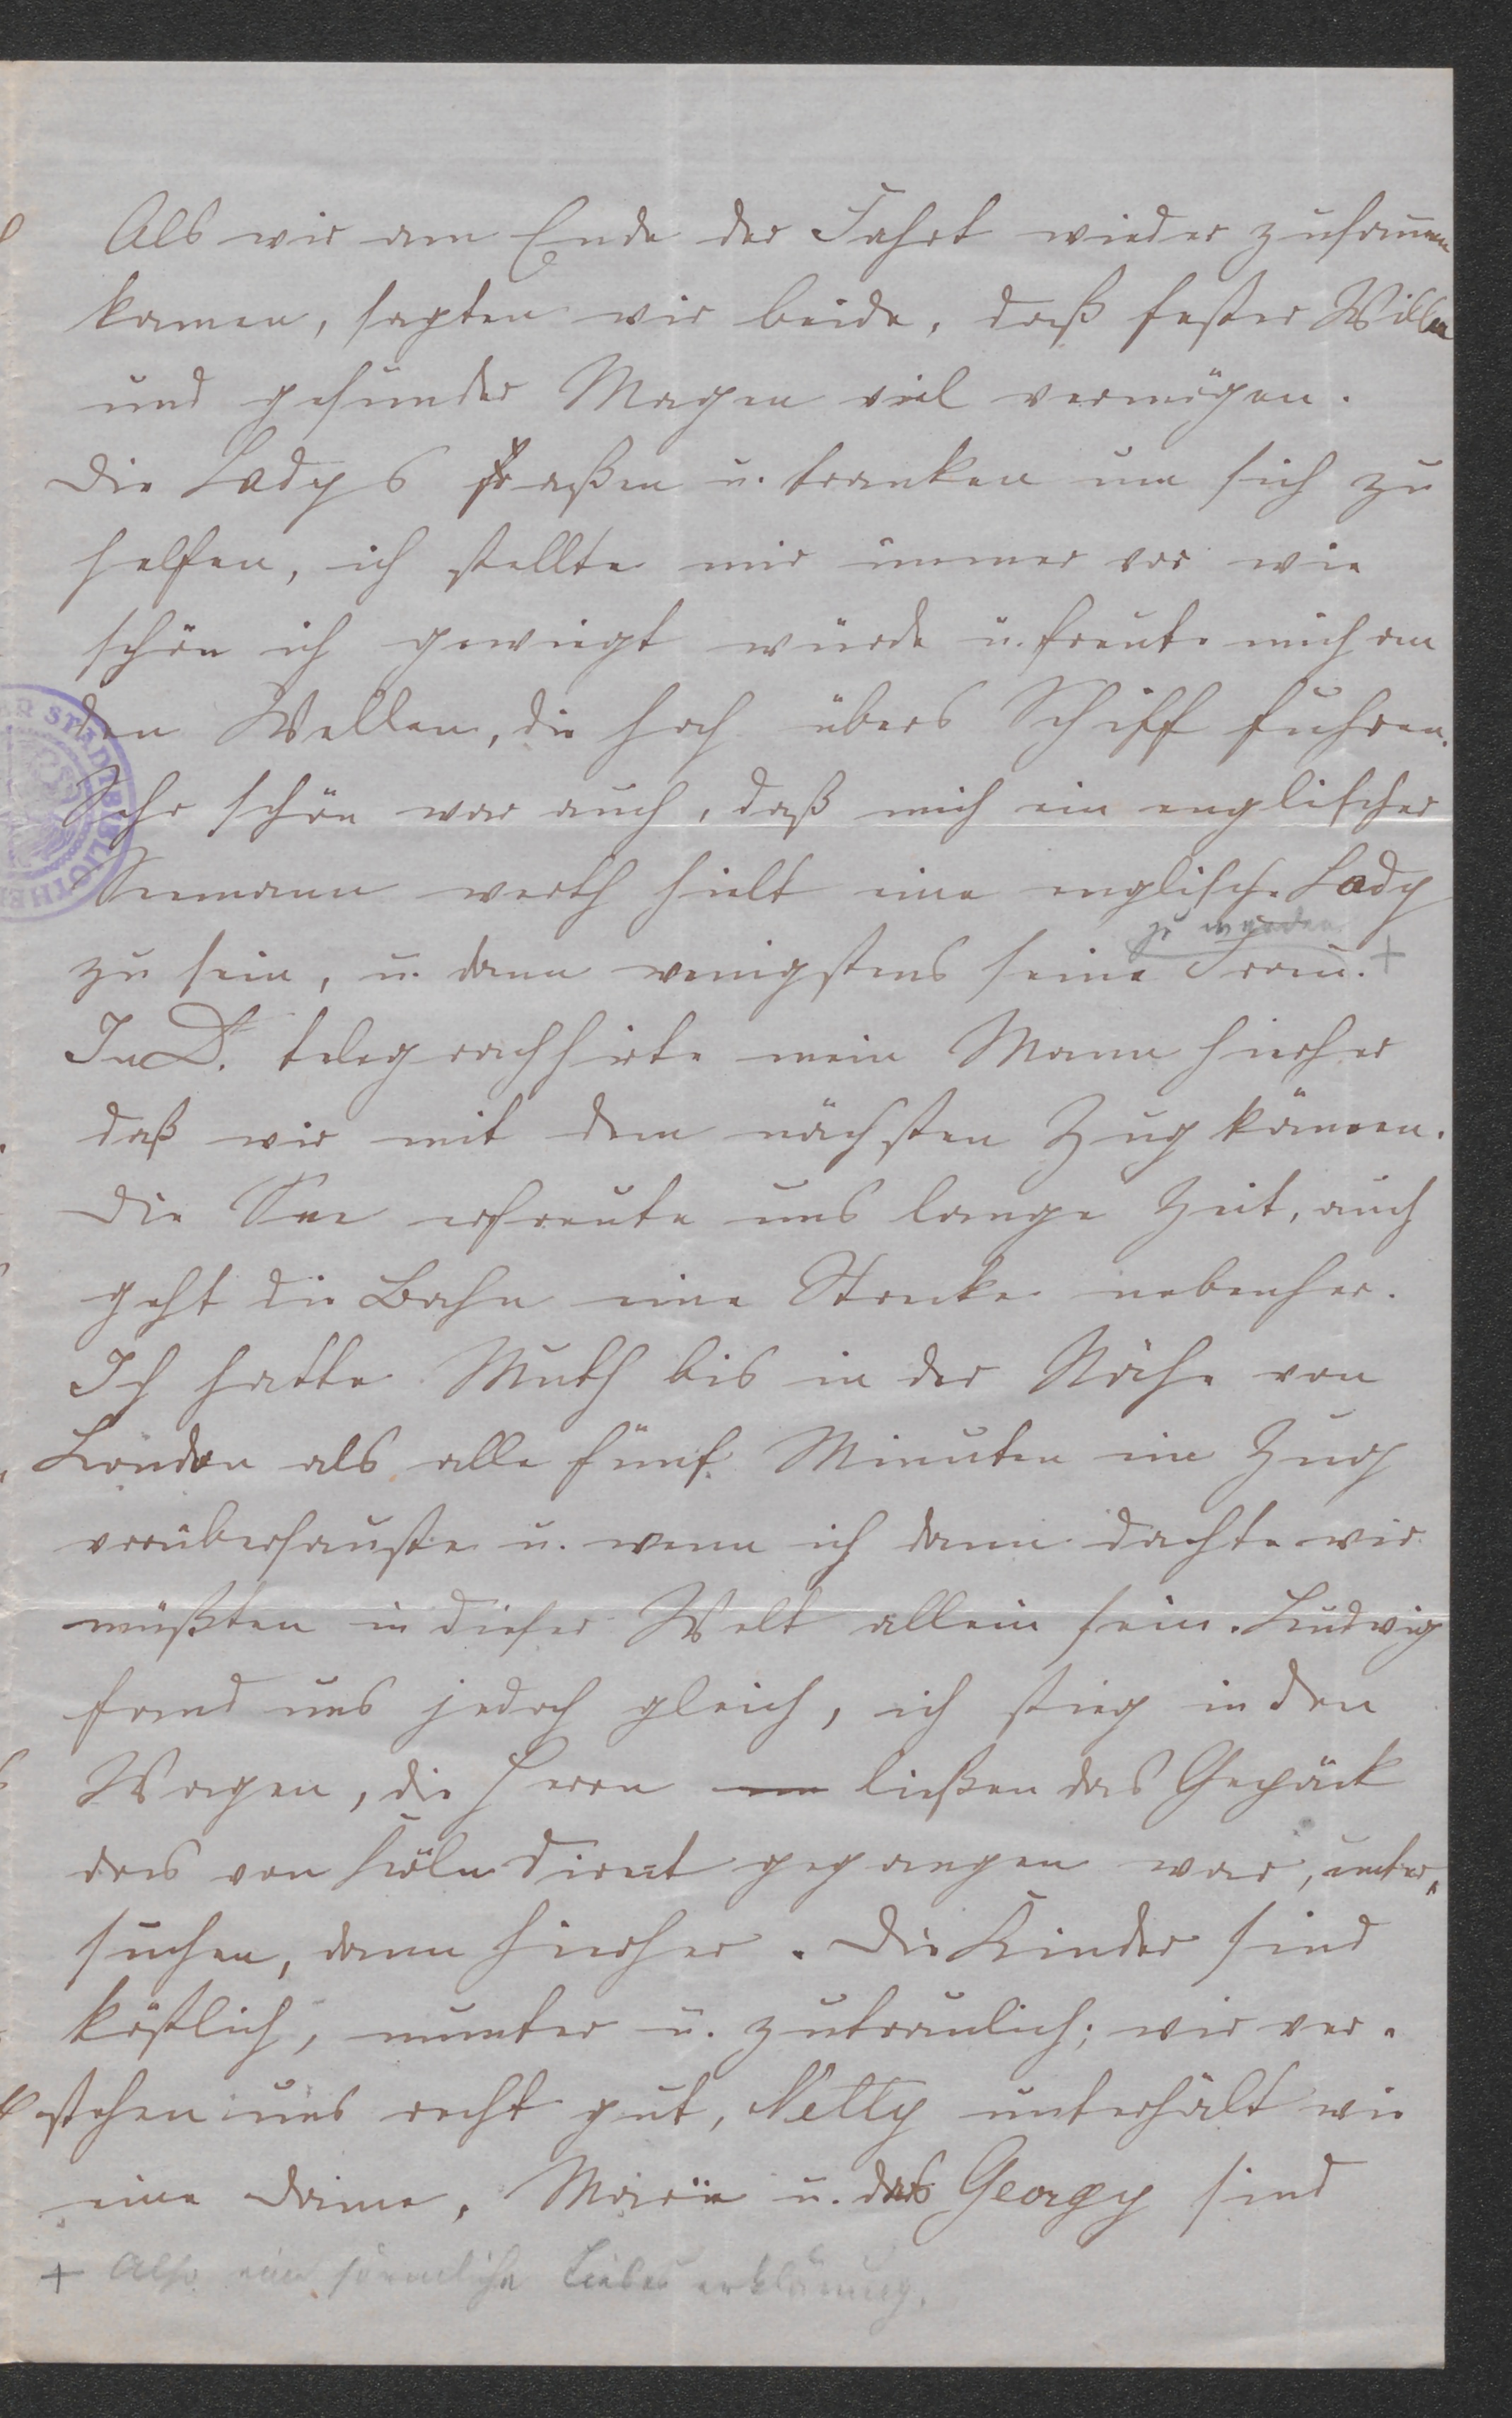 Als wir am Ende der Fahrt wieder zusammen
kamen, sagten wir beide, daß fester Willen
und gesunder Magen viel vermögen.
Die Ladys aßen u. tranken um sich zu
helfen, ich stellte mir immer vor wie
schön ich gewiegt würde u. freute mich an
den Wellen, die hoch übers Schiff fuhren.
Sehr schön war auch, daß mich ein englischer
Seemann werth hielt eine englische Lady
zu werden
zu sein, u. dann wenigstens seine Frau. +
In D. telegraphirte mein Mann hierher
daß wir mit dem nächsten Zug kämen.
Die See erfreute uns lange Zeit, auch
geht die Bahn eine Strecke nebenher.
Ich hatte Muth bis in der Nähe von
London als alle fünf Minuten ein Zug
vorübersauste u. wenn ich dann dachte wir
müßten in dieser Welt allein sein. Ludwig
fand uns jedoch gleich, ich stieg in den
Wagen, die Herrn ließen das Gepäck
das von Köln direct gegangen war, unter„
suchen, dann hierher. Die Kinder sind
köstlich, munter u. zutraulich; wir ver-
stehen uns recht gut, Netty unterhält wie
eine Dame, Marie u. das Georgy sind
+ Also eine förmliche Liebeserklärung.
STADTBIBLIOTHEK